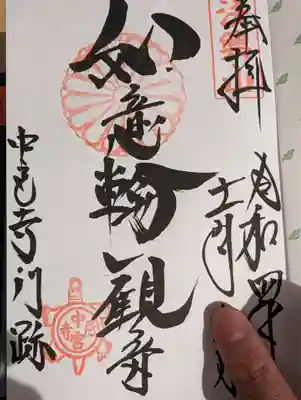 奉拝
令和四年
十二月
如意輪観音
中宮寺門跡
中宮寺印